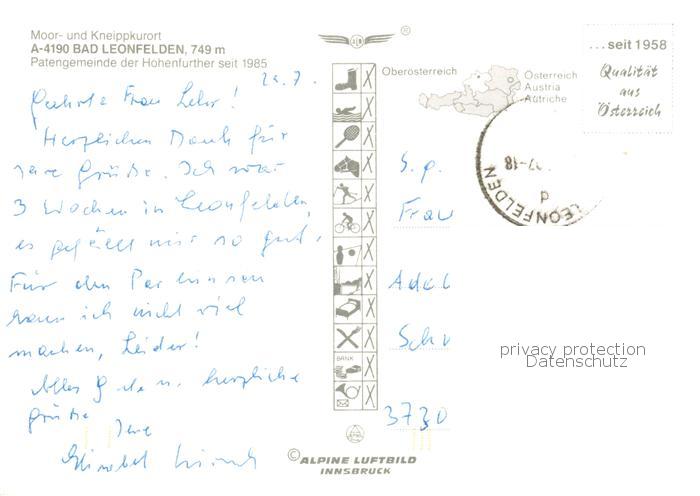 Moor- und Kneippkurort
A-4190 BAD LEONFELDEN, 749 m
Patengemeinde der Hohenfurther seit 1985
Oberösterreich
Österreich
Austria
Autriche
...seit 1958
Qualität
aus
Österreich
Frau
!
Herzlichen Dank für
Grüße. Ich war
3 Wochen in Leonfelden,
es gefällt mir so gut.
Für den
kann ich nicht viel
machen, Leider!
Alles Gute u. herzliche
Grüße
S. g.
Frau
Adel
Schr
3730
LEONFELDEN
BANK
privacy protection
Datenschutz
© ALPINE LUFTBILD
INNSBRUCK